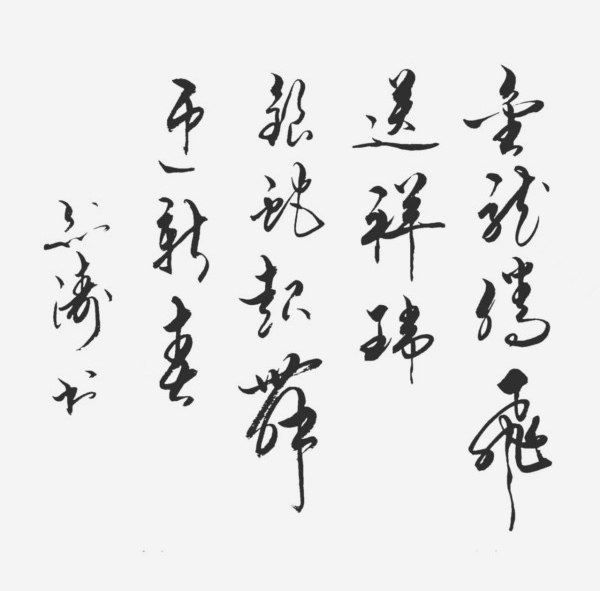 金龍騰飛
送祥瑞
銀蛇起舞
迎新春
濤书